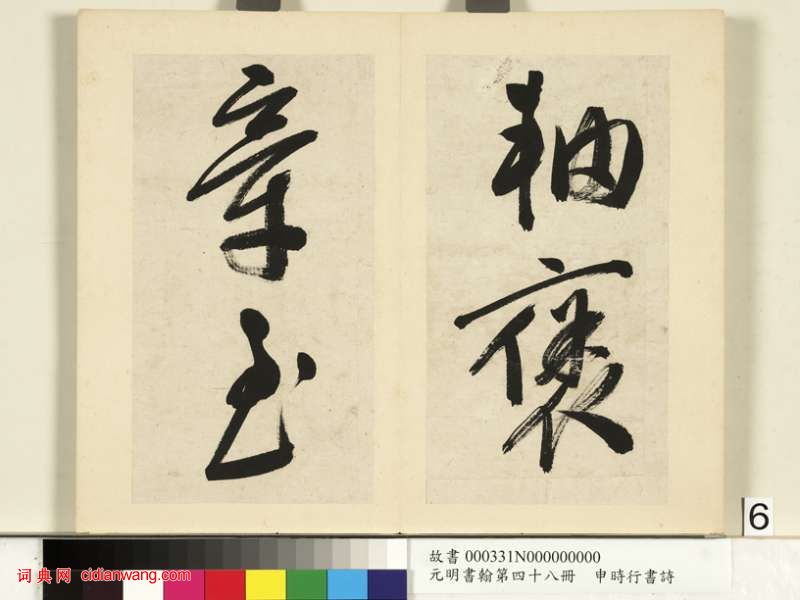 軸褒
章至
6
故書 000331N000000000
元明書翰第四十八冊 申時行書詩
词典网 cidianwang.com